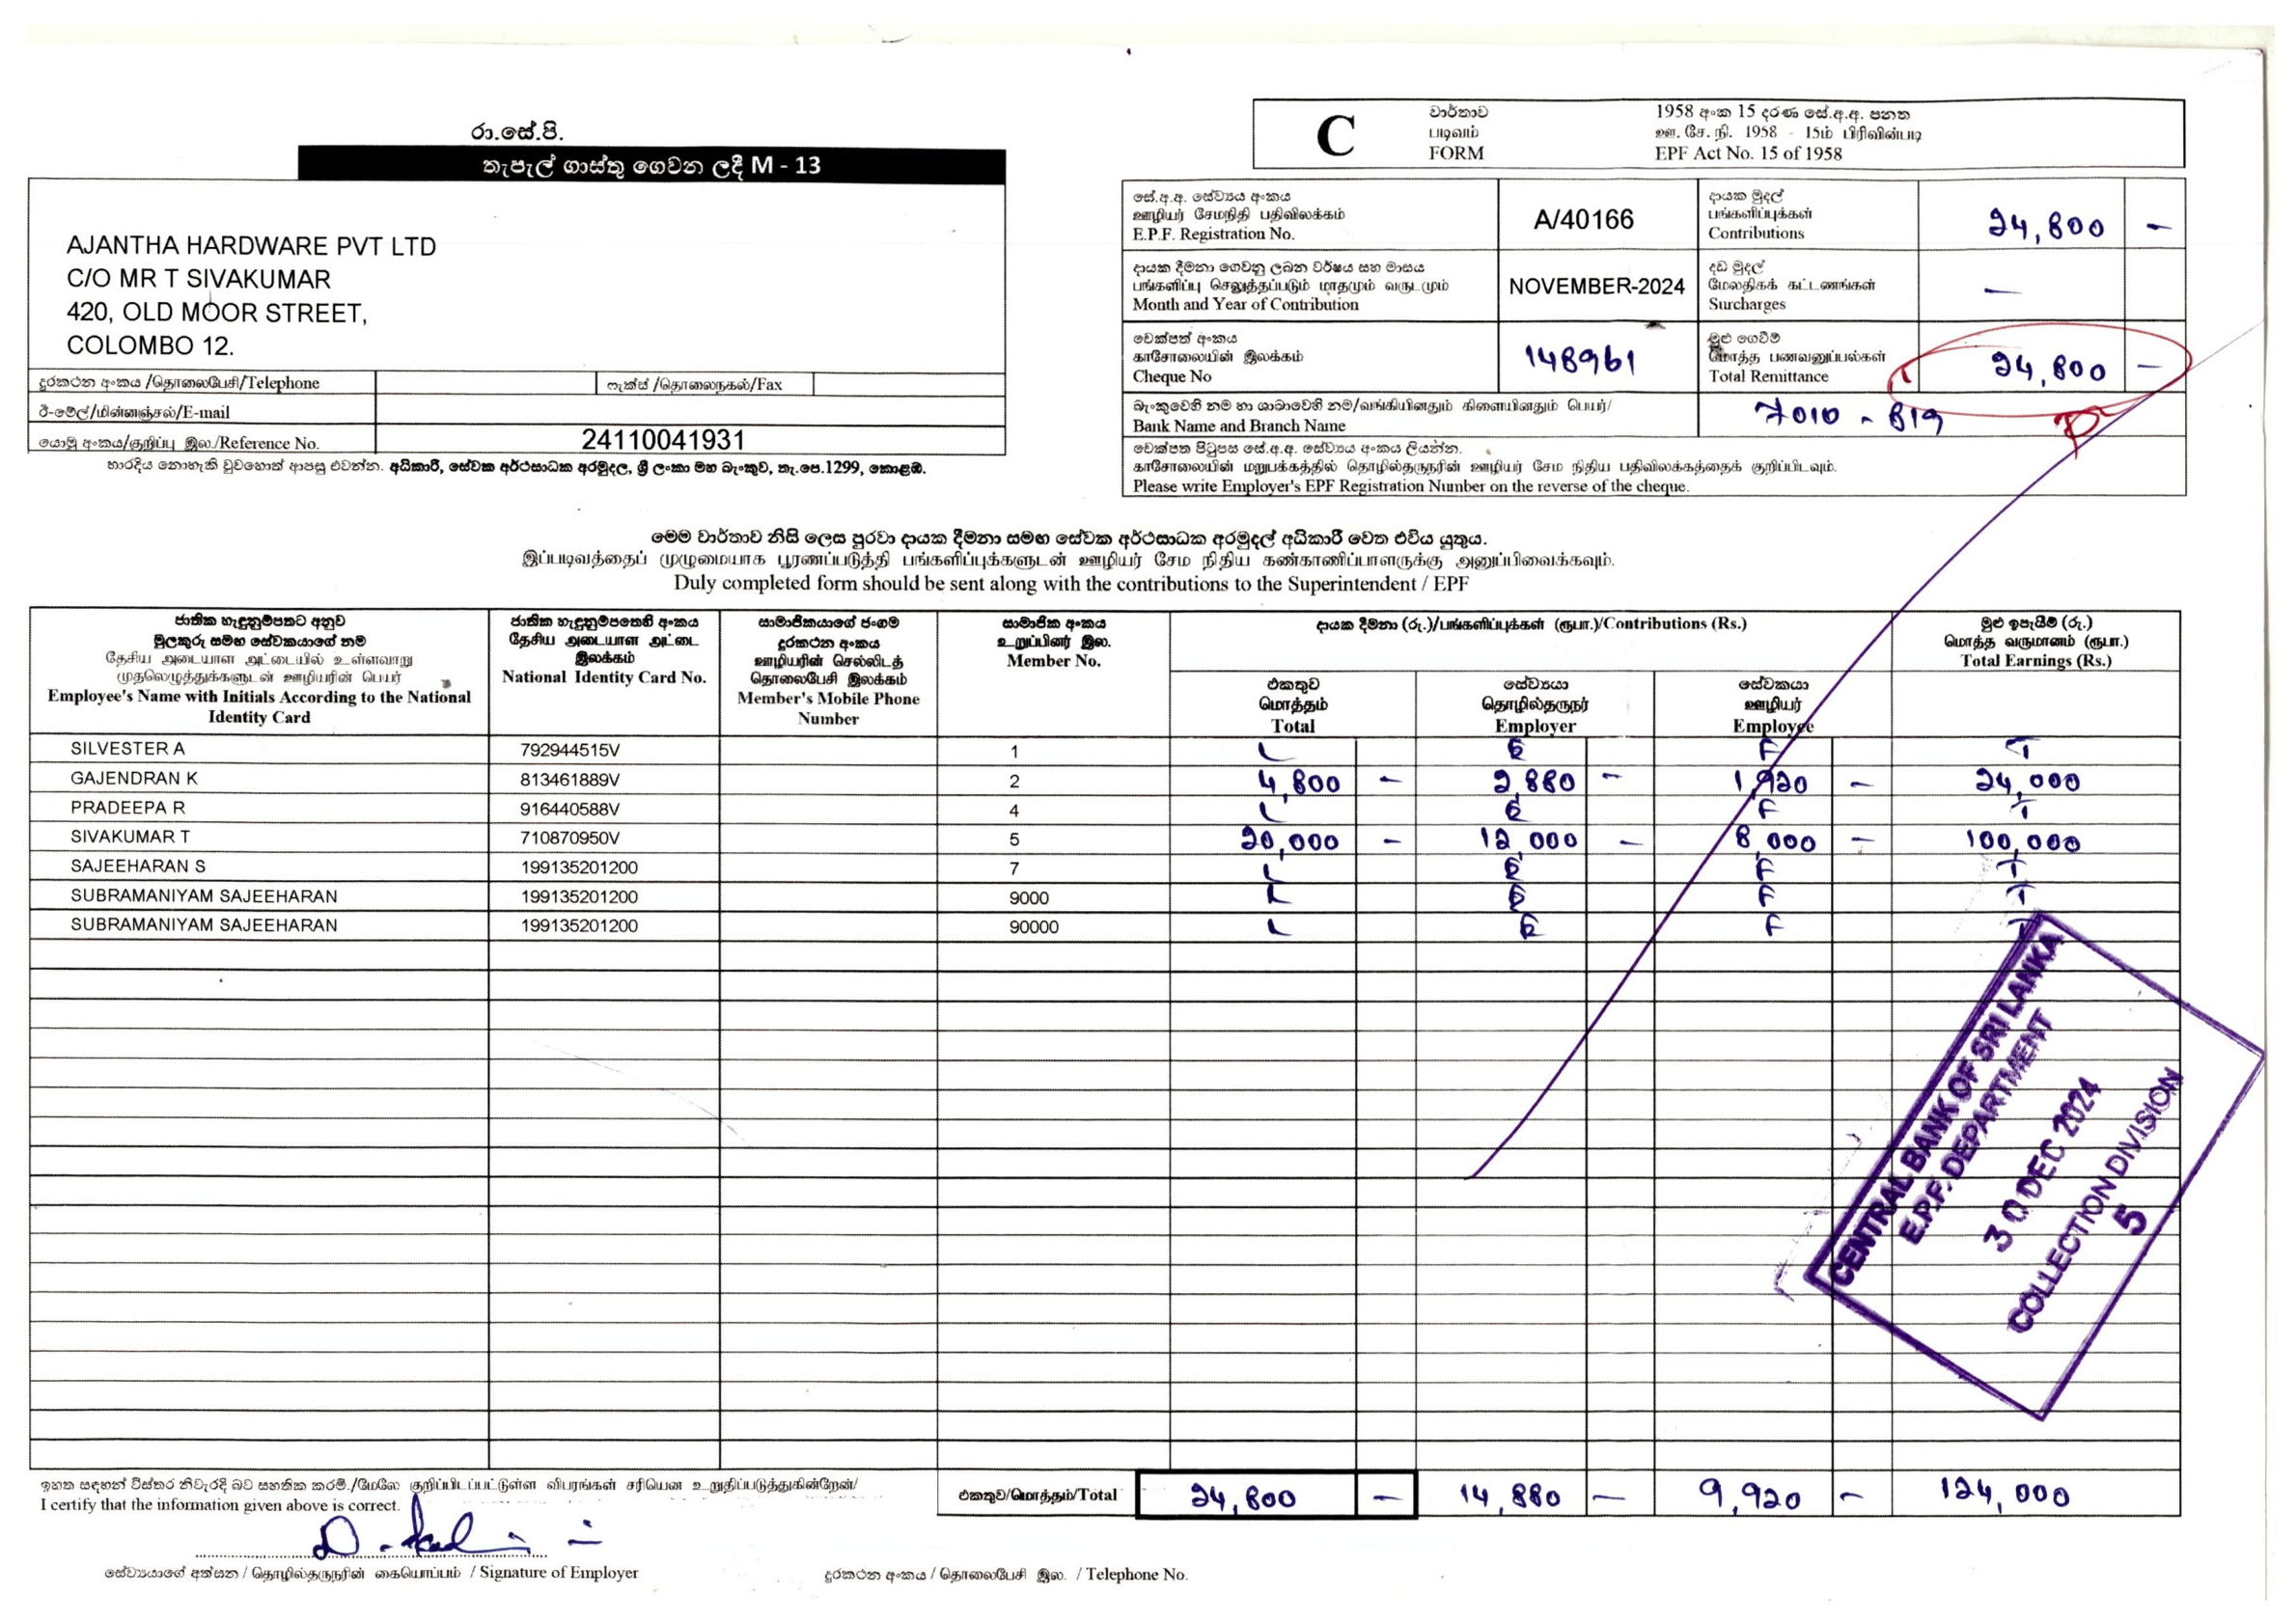 රා.සේ.පි.
තැපැල් ගාස්තු ගෙවන ලදී M - 13
AJANTHA HARDWARE PVT LTD
C/O MR T SIVAKUMAR
420, OLD MOOR STREET,
COLOMBO 12.
දුරකථන අංකය /தொலைபேசி/Telephone
ෆැක්ස් /தொலைநகல்/Fax
ඊ-මේල්/மின்னஞ்சல்/E-mail
යොමු අංකය/குறிப்பு இல./Reference No. 24110041931
භාරදිය නොහැකි වුවහොත් ආපසු එවන්න. අධිකාරී, සේවක අර්ථසාධක අරමුදල, ශ්‍රී ලංකා මහ බැංකුව, තැ.පෙ.1299, කොළඹ.
C
වාර්තාව
படிவம்
FORM
1958 අංක 15 දරණ සේ.අ.අ. පනත
ஊ. சே. நி. 1958 - 15ம் பிரிவின்படி
EPF Act No. 15 of 1958
සේ.අ.අ. සේව්‍යය අංකය
ஊழியர் சேமநிதி பதிவிலக்கம்
E.P.F. Registration No.
A/40166
දායක මුදල්
பங்களிப்புக்கள்
Contributions
24,800 -
දායක දීමනා ගෙවනු ලබන වර්ෂය සහ මාසය
பங்களிப்பு செலுத்தப்படும் மாதமும் வருடமும்
Month and Year of Contribution
NOVEMBER-2024
දඩ මුදල්
மேலதிகக் கட்டணங்கள்
Surcharges
-
චෙක්පත් අංකය
காசோலையின் இலக்கம்
Cheque No
148961
මුළු ගෙවීම්
மொத்த பணவனுப்பல்கள்
Total Remittance
24,800 -
බැංකුවෙහි නම හා ශාඛාවෙහි නම/வங்கியினதும் கிளையினதும் பெயர்/
Bank Name and Branch Name
7010 - 819
චෙක්පත පිටුපස සේ.අ.අ. සේව්‍යය අංකය ලියන්න.
காசோலையின் மறுபக்கத்தில் தொழில்தருநரின் ஊழியர் சேம நிதிய பதிவிலக்கத்தைக் குறிப்பிடவும்.
Please write Employer's EPF Registration Number on the reverse of the cheque.
මෙම වාර්තාව නිසි ලෙස පුරවා දායක දීමනා සමඟ සේවක අර්ථසාධක අරමුදල් අධිකාරී වෙත එවිය යුතුය.
இப்படிவத்தைப் முழுமையாக பூரணப்படுத்தி பங்களிப்புக்களுடன் ஊழியர் சேம நிதிய கண்காணிப்பாளருக்கு அனுப்பிவைக்கவும்.
Duly completed form should be sent along with the contributions to the Superintendent / EPF
ජාතික හැඳුනුම්පතට අනුව
මුලකුරු සමඟ සේවකයාගේ නම
தேசிய அடையாள அட்டையில் உள்ளவாறு
முதலெழுத்துக்களுடன் ஊழியரின் பெயர்
Employee's Name with Initials According to the National
Identity Card
ජාතික හැඳුනුම්පතෙහි අංකය
தேசிய அடையாள அட்டை
இலக்கம்
National Identity Card No.
සාමාජිකයාගේ ජංගම
දුරකථන අංකය
ஊழியரின் செல்லிடத்
தொலைபேசி இலக்கம்
Member's Mobile Phone
Number
සාමාජික අංකය
உறுப்பினர் இல.
Member No.
දායක දීමනා (රු.)/பங்களிப்புக்கள் (ரூபா.)/Contributions (Rs.)
එකතුව
மொத்தம்
Total
සේව්‍යයා
தொழில்தருநர்
Employer
සේවකයා
ஊழியர்
Employee
මුළු ඉපැයීම් (රු.)
மொத்த வருமானம் (ரூபா.)
Total Earnings (Rs.)
SILVESTER A 792944515V 1 L E F T
GAJENDRAN K 813461889V 2 4,800 - 2,880 - 1,920 - 24,000
PRADEEPA R 916440588V 4 L E F T
SIVAKUMAR T 710870950V 5 20,000 - 12,000 - 8,000 - 100,000
SAJEEHARAN S 199135201200 7 L E F T
SUBRAMANIYAM SAJEEHARAN 199135201200 9000 L E F T
SUBRAMANIYAM SAJEEHARAN 199135201200 90000 L E F T
CENTRAL BANK OF SRI LANKA
E.P.F. DEPARTMENT
30 DEC 2024
COLLECTION DIVISION
5
ඉහත සඳහන් විස්තර නිවැරදි බව සහතික කරමි./மேலே குறிப்பிடப்பட்டுள்ள விபரங்கள் சரியென உறுதிப்படுத்துகின்றேன்/
I certify that the information given above is correct.
එකතුව/மொத்தம்/Total 24,800 - 14,880 - 9,920 - 124,000
සේව්‍යයාගේ අත්සන / தொழில்தருநரின் கையொப்பம் / Signature of Employer
දුරකථන අංකය / தொலைபேசி இல. / Telephone No.